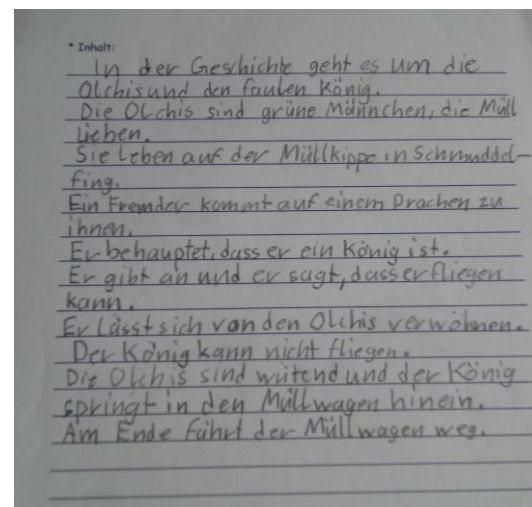 * Inhalt:
In der Geschichte geht es um die
Olchis und den faulen König.
Die Olchis sind grüne Männchen, die Müll
lieben.
Sie leben auf der Müllkippe in Schmuddel-
fing.
Ein Fremder kommt auf einem Drachen zu
ihnen.
Er behauptet, dass er ein König ist.
Er gibt an und er sagt, dass er fliegen
kann.
Er lässt sich von den Olchis verwöhnen.
Der König kann nicht fliegen.
Die Olchis sind wütend und der König
springt in den Müllwagen hinein.
Am Ende fährt der Müllwagen weg.